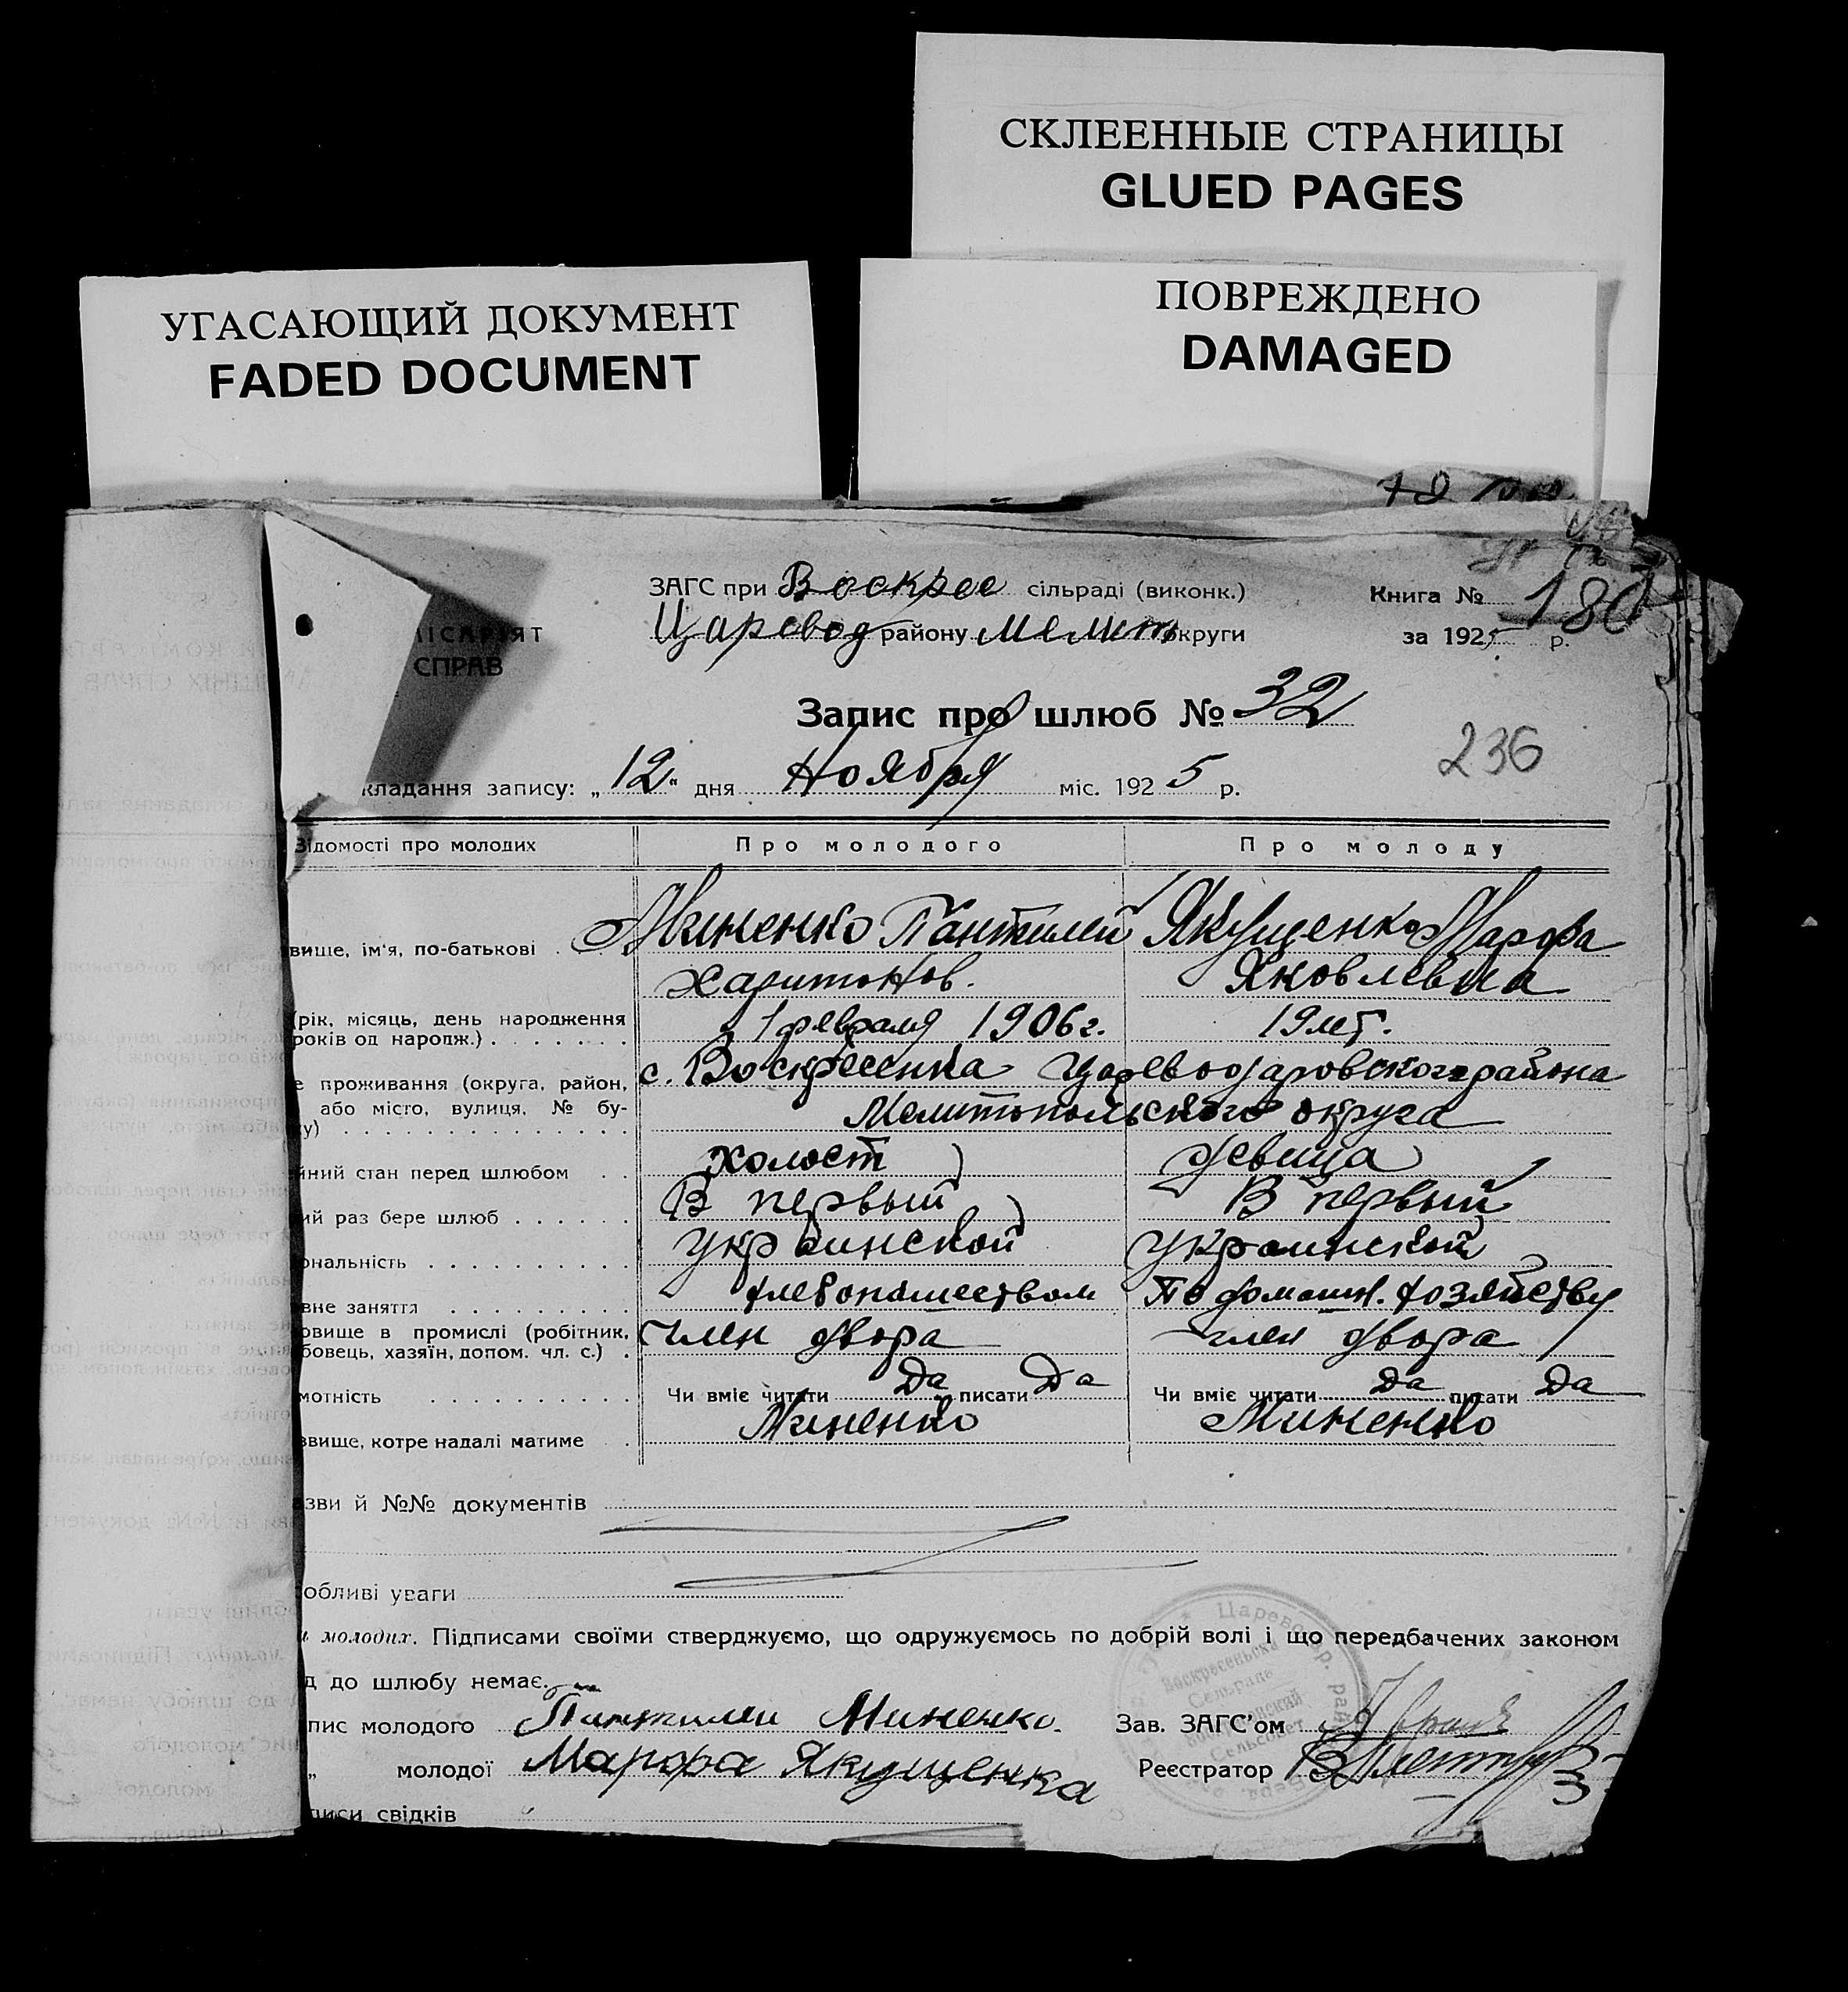 СКЛЕЕННЫЕ СТРАНИЦЫ
GLUED PAGES
УГАСАЮЩИЙ ДОКУМЕНТ
FADED DOCUMENT
ПОВРЕЖДЕНО
DAMAGED
ЗАГС при Воскрес сільраді (виконк.)
Книга № 180
ІСАРІЯТ
СПРАВ
Царевод району Мелит округи
за 1925 р.
Запис про шлюб № 32
236
кладання запису: „12" дня Ноября міс. 1925 р.
Відомості про молодих Про молодого Про молоду
вище, ім'я, по-батькові . Миненко Пантилей Якущенко Марфа
Харитонов. Яковлевна
(рік, місяць, день народження
років од народж.) . . . . . . . 1 февраля 1906 г. 19 лет.
е проживання (округа, район, с. Воскресенка Царевводаровского района
або місто, вулиця, № бу-
ку) . . . . . . . . . . . . . . Мелитопольского округа
йний стан перед шлюбом . . холост девица
ий раз бере шлюб . . . . . . В первый В первый
ональність . . . . . . . . . . украинской украинской
вне заняття . . . . . . . . . хлебопашеством По домашн. хозяйству
овище в промислі (робітник,
бовець, хазяїн, допом. чл. с.) . член двора член двора
мотність . . . . . . . . . . Чи вміє читати Да писати Да Чи вміє читати Да писати Да
звище, котре надалі матиме . Миненко Миненко
азви й №№ документів
обливі уваги
и молодих. Підписами своїми стверджуємо, що одружуємось по добрій волі і що передбачених законом
д до шлюбу немає.
пис молодого Пантилей Миненко. Зав. ЗАГС'ом
„ молодої Марфа Якущенка Реєстратор
писи свідків
Воскресеньска
Сельрада
Сельсовет